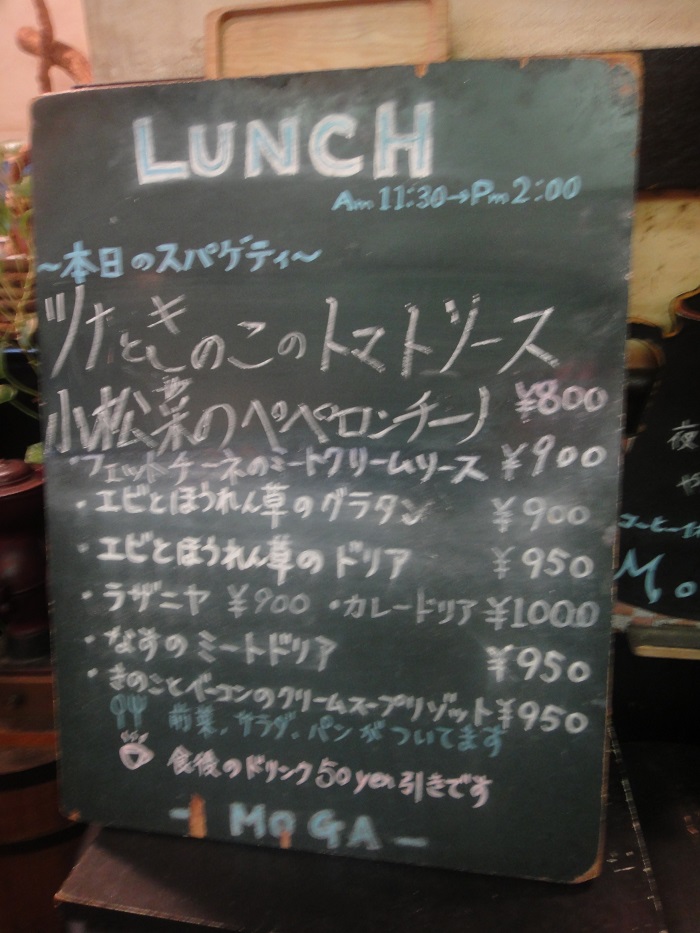 LUNCH
Am 11:30→Pm 2:00
~本日のスパゲティ~
ツナときのこのトマトソース
小松菜のペペロンチーノ ¥800
・フェットチーネのミートクリームソース ¥900
・エビとほうれん草のグラタン ¥900
・エビとほうれん草のドリア ¥950
・ラザニヤ ¥900 ・カレードリア ¥1000
・なすのミートドリア ¥950
・きのことベーコンのクリームスープリゾット ¥950
前菜、サラダ、パンがついてます
食後のドリンク50yen引きです
- MOGA -
夜
や
コーヒー
Mo